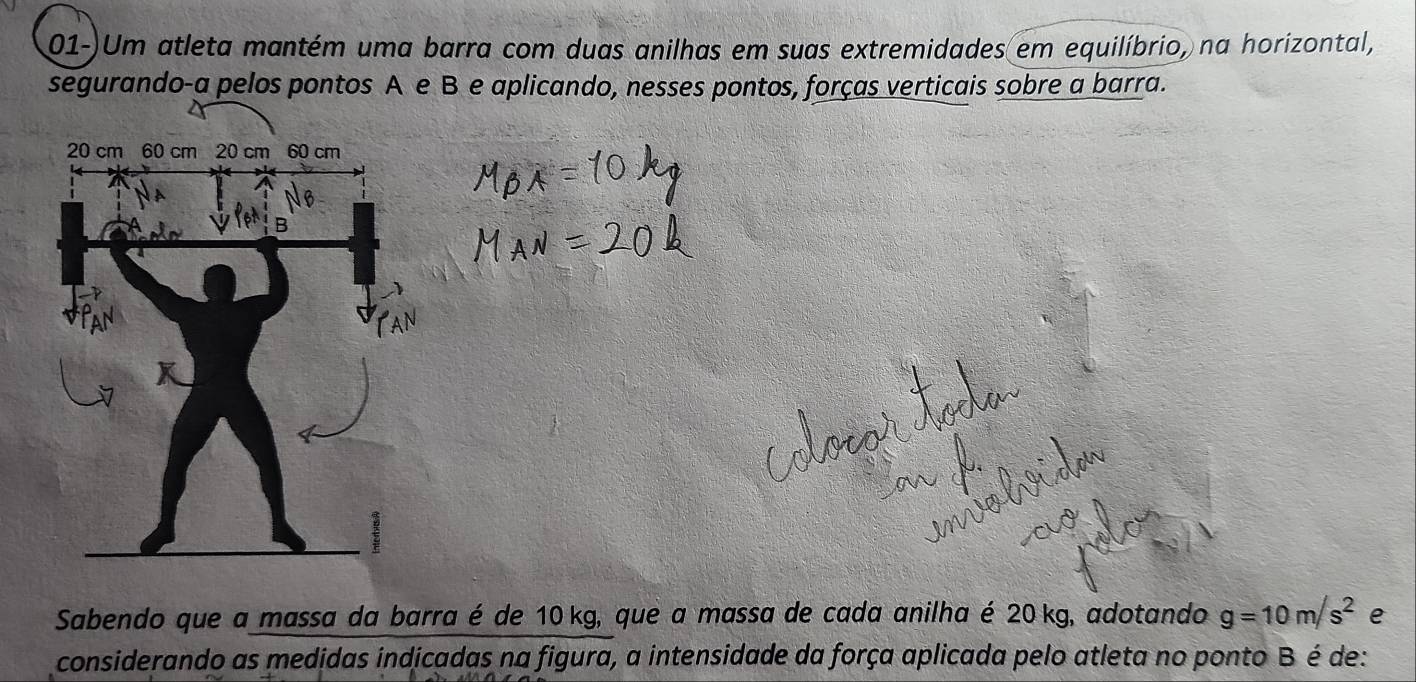 01-) Um atleta mantém uma barra com duas anilhas em suas extremidades em equilíbrio, na horizontal,
segurando-a pelos pontos A e B e aplicando, nesses pontos, forças verticais sobre a barra.
20 cm 60 cm 20 cm 60 cm
NA PBA NB
A polo B
MBA = 10 kg
MAN = 20 k
PAN PAN
colocar todas
as f.
envolvidas
ao
polo
Intervisual
Sabendo que a massa da barra é de 10 kg, que a massa de cada anilha é 20 kg, adotando g = 10 m/s² e
considerando as medidas indicadas na figura, a intensidade da força aplicada pelo atleta no ponto B é de: